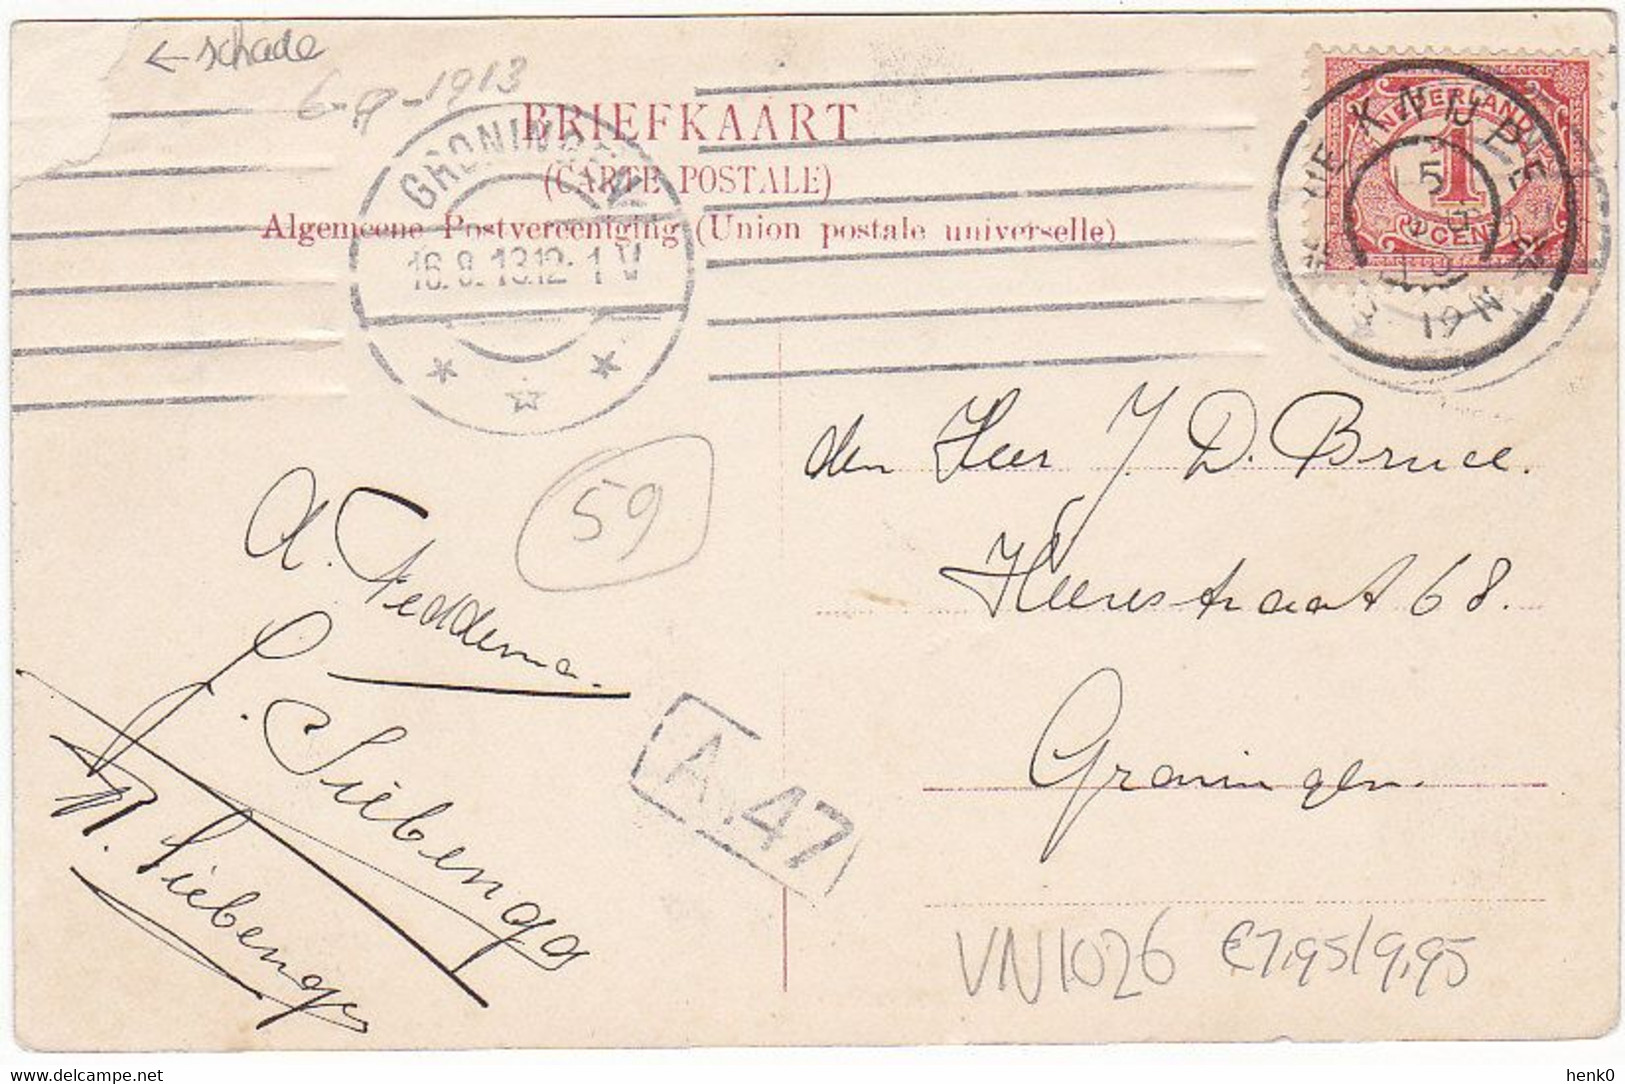 ← schade
6-9-1913
BRIEFKAART
(CARTE POSTALE)
Algemeene Postvereeniging (Union postale universelle)
GRONINGEN
16.9.13 12-1 V
NEDERLAND
1
CENT
DE KNIJPE
15
19 N
den Heer J. D. Bruce.
Heerestraat 68.
Groningen.
59
A. Feddema.
J. Siebenga
R. Siebenga
A.47
VN1026 €7,95/9,95
henk0